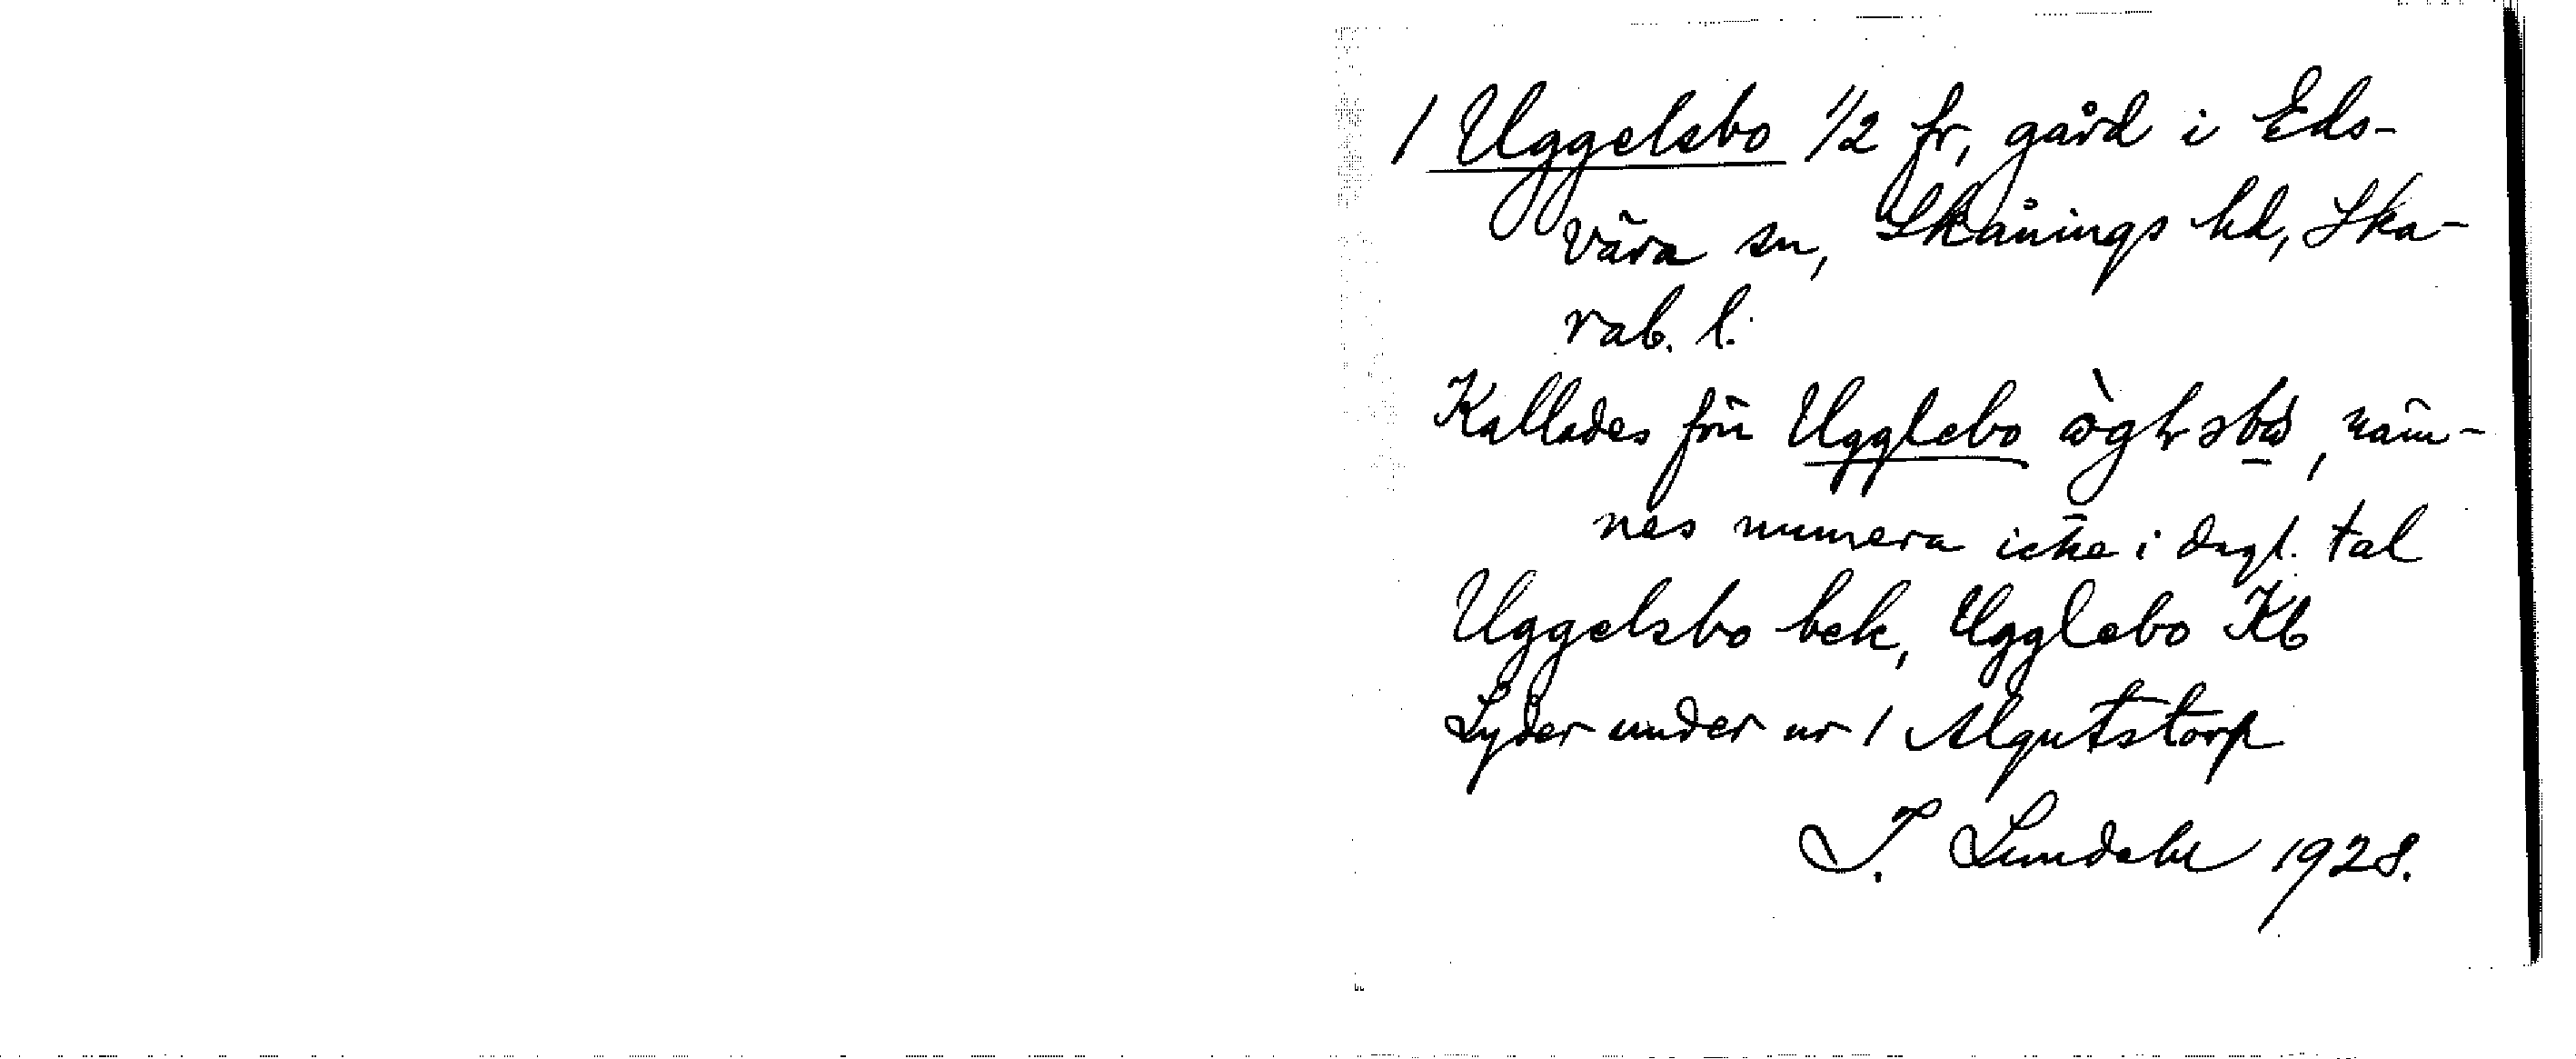 1 Uggelsbo 1/2 fr, gård i Eds-
våra sn, Skånings hd, Ska-
rab. l.
Kallades förr Ugglebo, näm-
nes numera icke i dagl. tal
Uggelsbo bek, Ugglebo Kb
Lyder under nr 1 Algutstorp
J. Lundahl 1928.